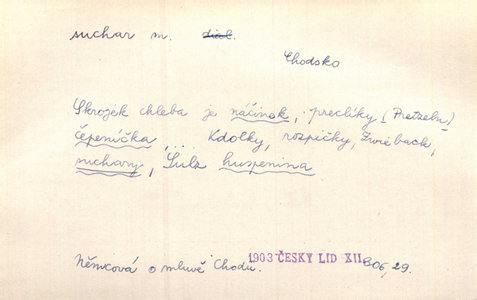 suchar m. dial.
Chodsko
Skrojék chleba je náčinek, preclíky (Pretzeln)
čepenička, ... Kdolky, rozpičky, Zwieback,
suchary, Sulz huspenina
Němcová o mluvě Chodů. 1903 ČESKY LID XII 306, 29.